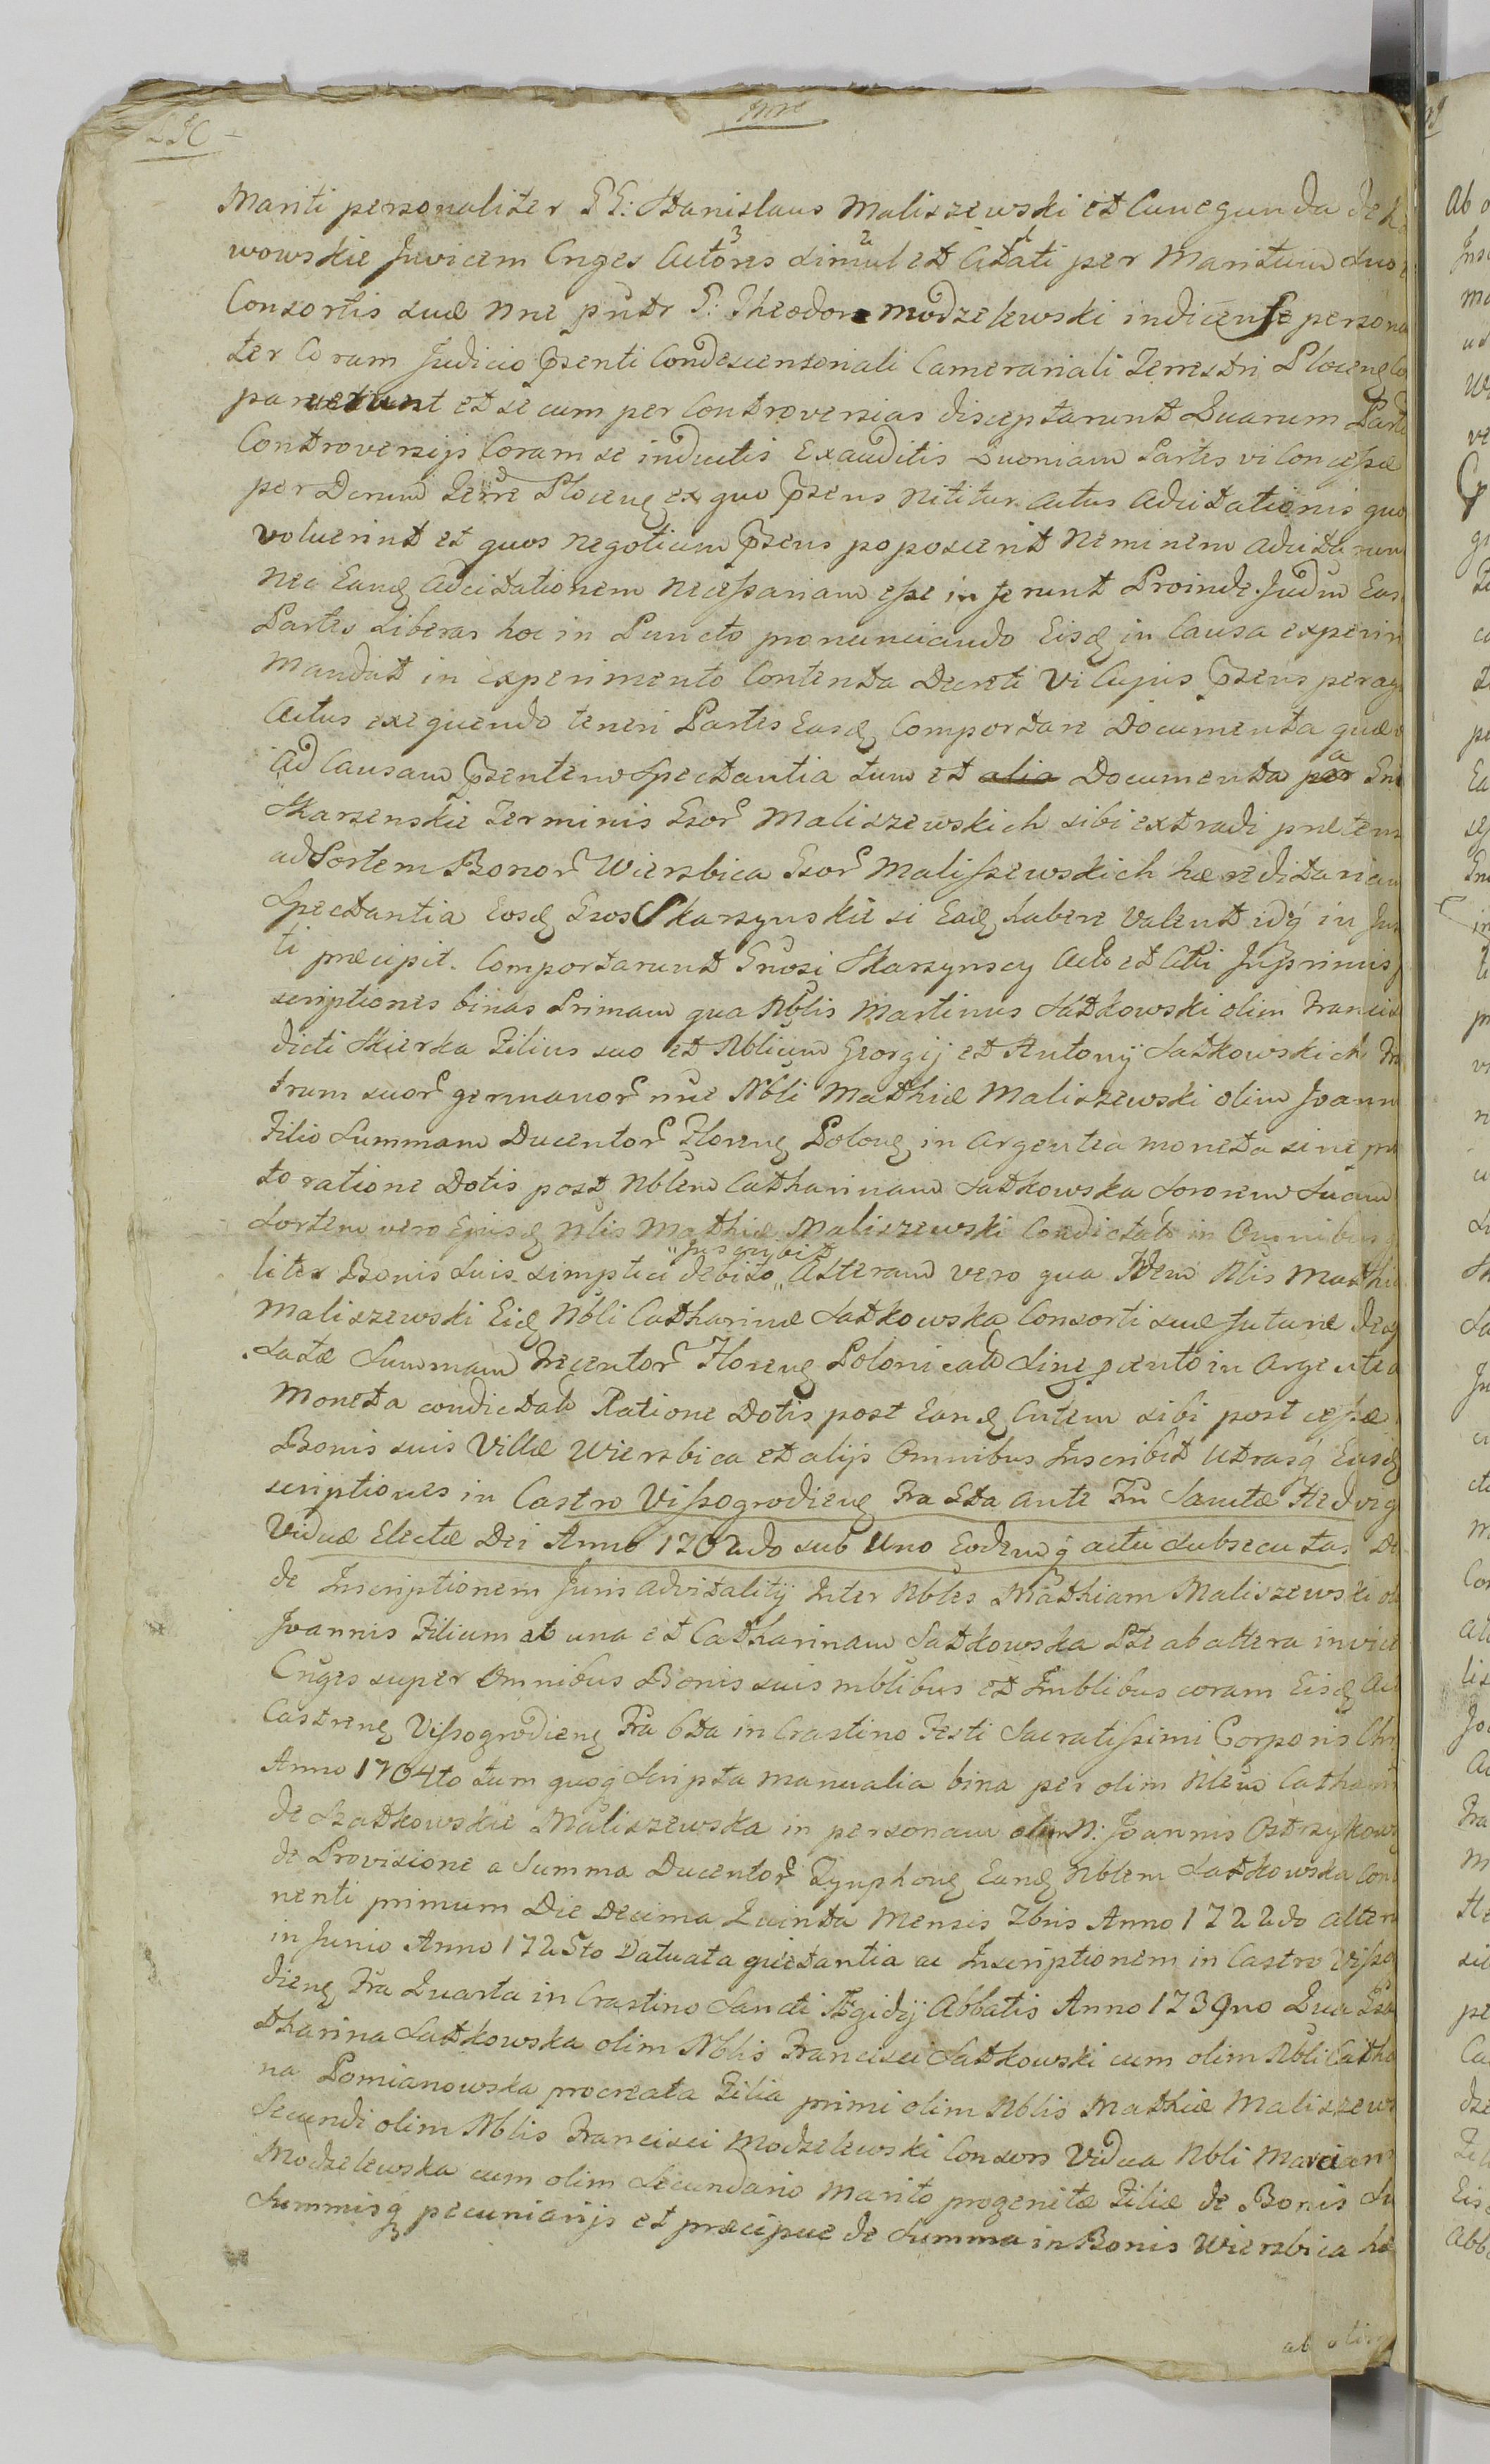 Mariti personaliter GG: Stanislaus Maliszewski et Cunegunda de
wowskie Invicem Cnges Actores simul et Citati per Maritum suo
Consortis suæ Nne pntr G: Theodor Modzelewski indicense persona
ter Coram Judicio Psenti Condescensoriali Camerariali Terrestri Plocens Co
paruerunt et se cum per Controversias disceptarunt Quarum Parti
Controversijs Coram se inductis Exauditis Quoniam Partes vi Concessæ
per Decrum Terre Plocens ex quo Psens nititur Actus Adcitationis quo
voluerint et quos negotium Psens poposcerit Neminem adcitarunt
nec Eand adcitationem necessariam esse inferunt Proinde Judm Eas
Partes Liberas hoc in Puncto pronunciando Eisd in Causa experiri
Mandat in Experimento Contenta Decreti Vi Cujus Psens perag
Actus exequendo teneri Partes Easd Comportare Documenta quæ
ad Causam Psentem Spectantia tum et alia Documenta per a Gn
Skarzenskie Terminis Gsor Maliszewskich sibi extradi præten
ad Sortem Bonor Wierzbica Gsor Maliszewskich hæreditariam
Spectantia Eosd Gsos Skarzynskie si Ead habere valent idq in Jur
ti præcipit. Comportarunt Gnosi Skarzynscy Acto et Citti Inprimis
scriptiones binas Primam qua Nblis Martinus Satkowski olim Francis
dicti Skierka Filius suo et Nblium Georgij et Antonij Satkowskich Fra
trum suor germanor nne Nbli Mathiæ Maliszewski olim Joann
Filio Summam Ducentor Floren Polon in Argentea moneta sine pa
to ratione Dotis post Nblem Catharinam Satkowska Sororem Suam
Sortem vero Ejusd Nlis Mathiæ Maliszewski Condictat in Omnibus
liter Bonis suis simplici debito Inscribit Alteram vero qua Idem Nlis Mathi
Maliszewski Eid Nbli Catharinæ Satkowska Consorti suæ futuræ des
satæ Summam Trecentor Floren Polonicat Sine pcento in Argentea
Moneta condictat Ratione Dotis post Eand Cutem sibi post cessæ
Bonis suis Villæ Wierzbica et alijs Omnibus Inscribit Utrasq Easd
scriptiones in Castro Vissogrodien Fra Sta ante Fm Sanctæ Hedvig
Viduæ Electæ Dei Anno 1702do sub Uno Eodemq actu subsecutas De
de Inscriptionem Juris advitalitij Inter Nbles Mathiam Maliszewski ol
Joannis Filium ab una et Catharinam Satkowska Pte ab altera invice
Cnges super Omnibus Bonis suis mblibus et Imblibus coram Eisd Act
Castren Vissogrodien Fra 6ta in Crastino Festi Sacratissimi Corporis Chr
Anno 1704to tum quoq Scripta manualia bina per olim Nlem Cathari
de Szatkowskie Maliszewska in personam olim N: Joannis Ostrzykows
de Provisione a Summa Ducentor Tynphon Eand Nblem Satkowska Con
nenti primum Die Decima Quinta Mensis 7bris Anno 1722do alterum
in Junio Anno 1725to Datuata quietantia ac Inscriptionem in Castro Visso
dien Fra Quarta in Crastino Sancti Ægidij Abbatis Anno 1739no Qua Gsa
tharina Satkowska olim Nblis Francisci Satkowski cum olim Nbli Catha
na Pomianowska procreata Filia primi olim Nblis Mathiæ Maliszews
Secundi olim Nblis Francisci Modzelewski Consors Vidua Nbli Mariann
Modzelewska cum olim Secundario Marito progenitæ Filiæ de Bonis Su
Summisq pecuniarijs et præcipue de Summa in Bonis Wierzbica hæ
ab olim